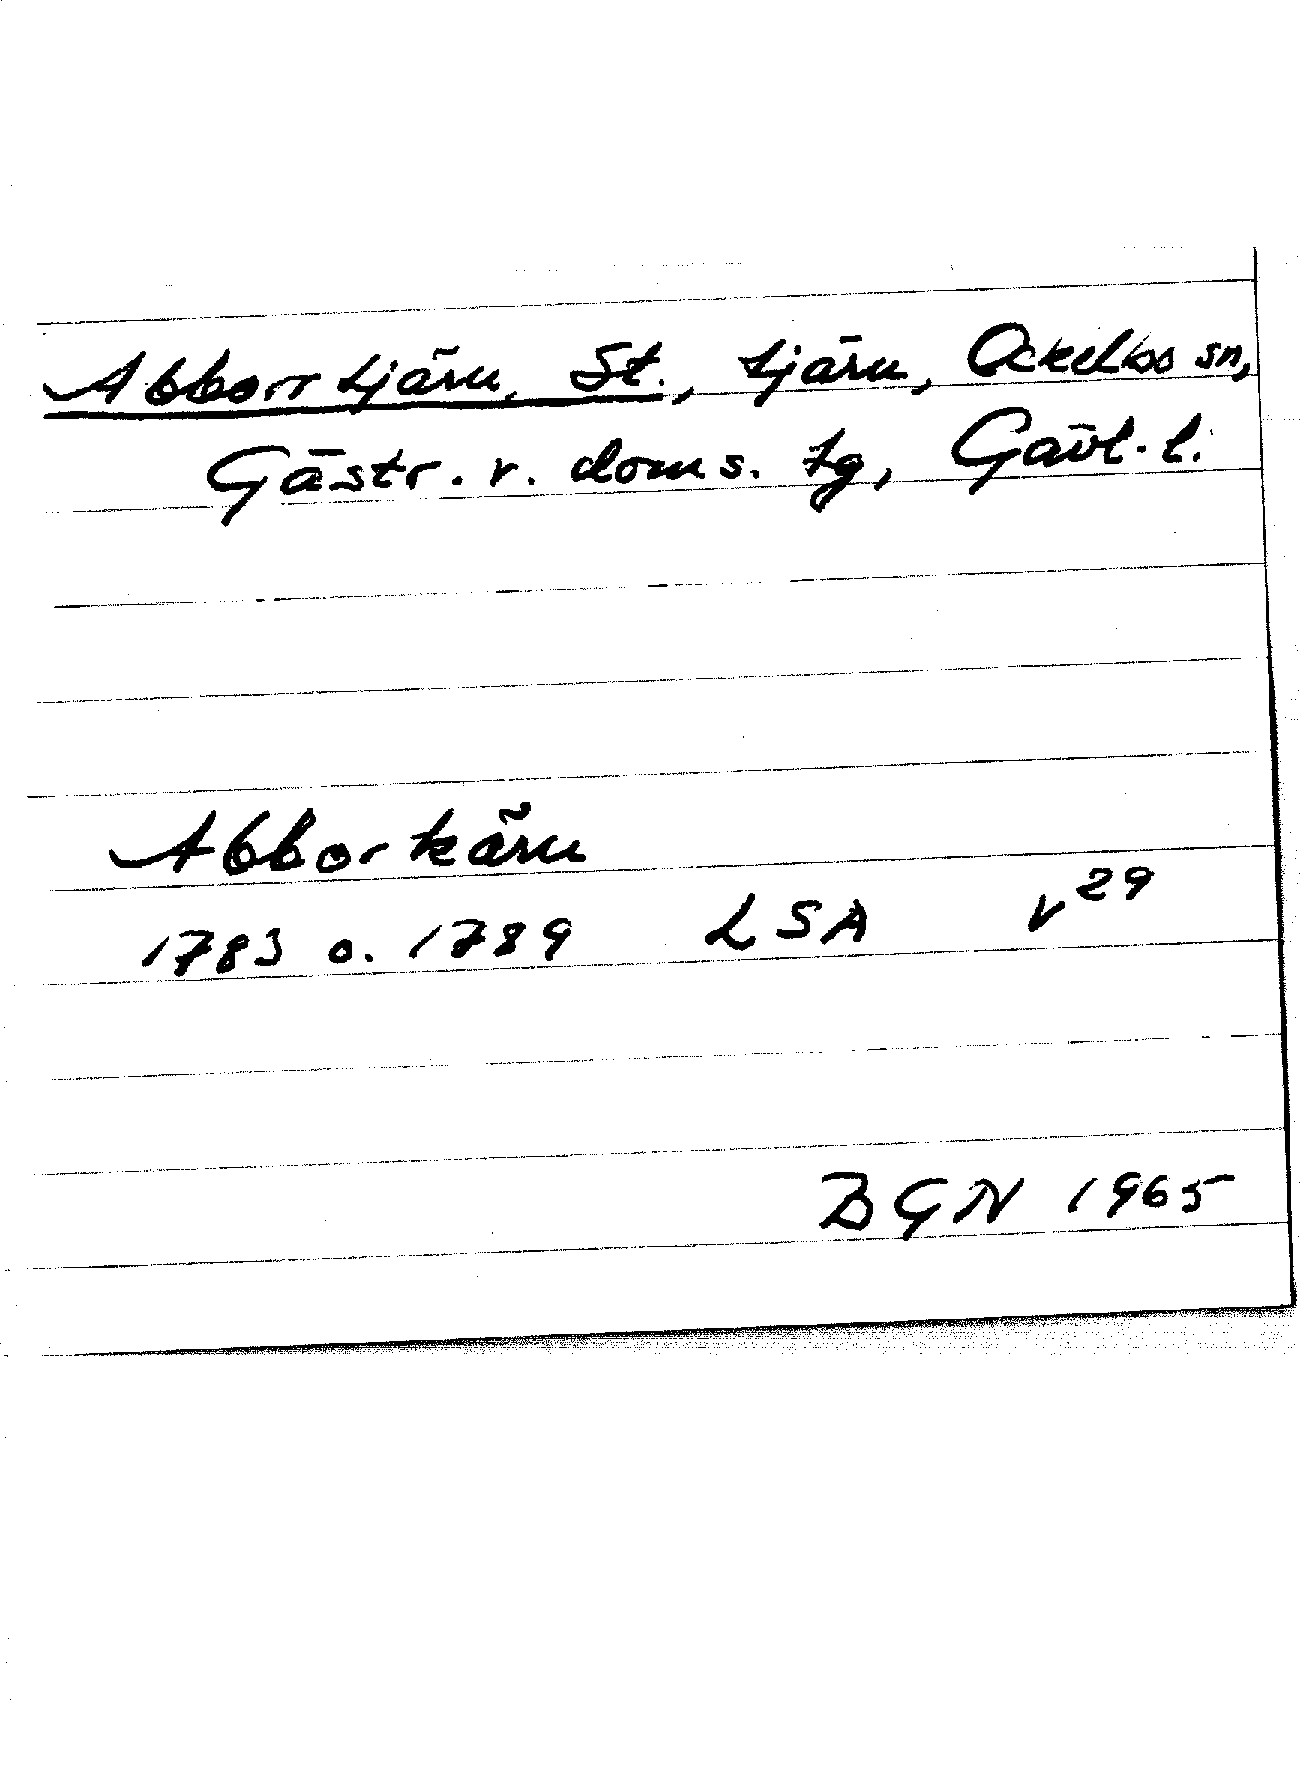 Abborrtjärn, St., tjärn, Ockelbo sn,
Gästr. v. doms. tg, Gävl. l.
Abborkärn
1783 o. 1789 LSA v 29
BGN 1965